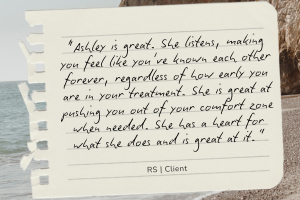 "Ashley is great. She listens, making
you feel like you've known each other
forever, regardless of how early you
are in your treatment. She is great at
pushing you out of your comfort zone
when needed. She has a heart for
what she does and is great at it."
RS | Client